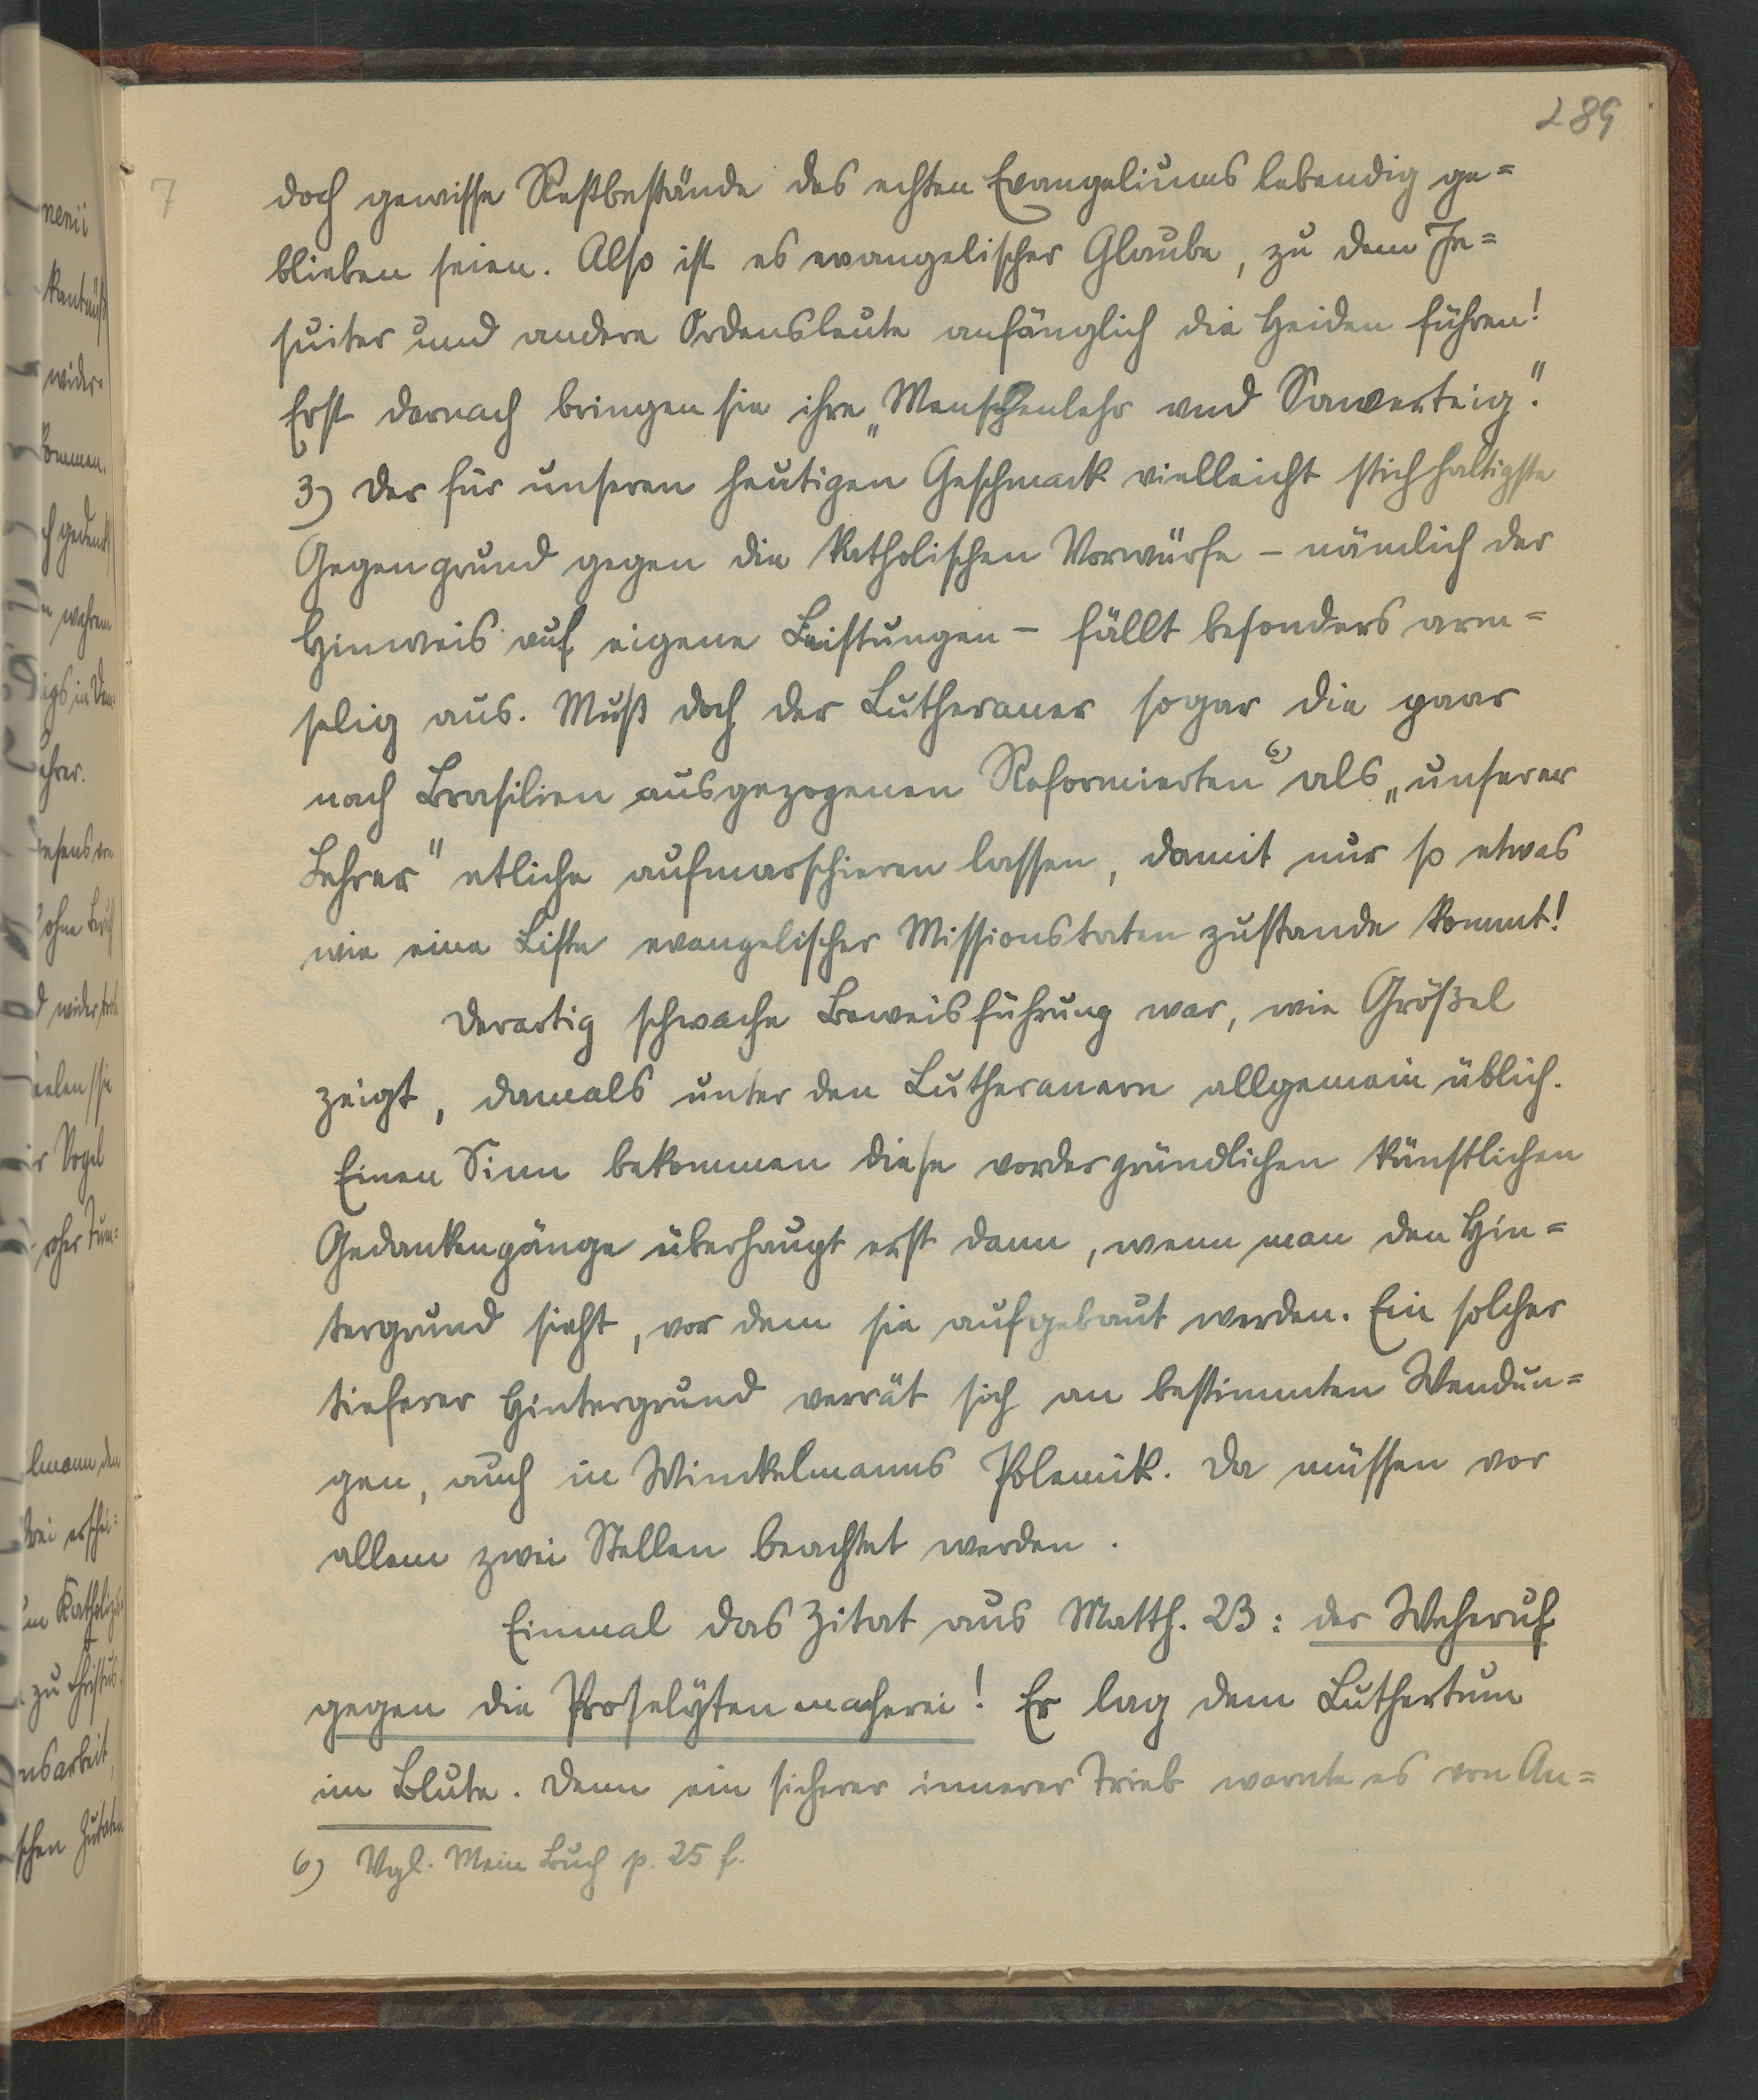 289
7
doch gewisse Restbestände des echten Evangeliums lebendig ge=
blieben seien. Also ist es evangelischer Glaube, zu dem Je=
suiter und andere Ordensleute anfänglich die Heiden führen!
Erst darnach bringen sie ihre „Menschenlehr und Sawerteig".
3) Der für unseren heutigen Geschmack vielleicht stichhaltigste
Gegengrund gegen die katholischen Vorwürfe – nämlich der
Hinweis auf eigene Leistungen – fällt besonders arm=
selig aus. Muß doch der Lutheraner sogar die paar
nach Brasilien ausgezogenen Reformierten 6) als „unserer
Lehrer" etliche aufmarschieren lassen, damit nur so etwas
wie eine Liste evangelischer Missionstaten zustande kommt!
Derartig schwache Beweisführung war, wie Größel
zeigt, damals unter den Lutheranern allgemein üblich.
Einen Sinn bekommen diese vordergründlichen künstlichen
Gedankengänge überhaupt erst dann, wenn man den Hin=
tergrund sieht, vor dem sie aufgebaut werden. Ein solcher
tieferer Hintergrund verrät sich an bestimmten Wendun=
gen, auch in Winckelmanns Polemik. Da müssen vor
allem zwei Stellen beachtet werden.
Einmal das Zitat aus Matth. 23: der Weheruf
gegen die Proselytenmacherei! Er lag dem Luthertum
im Blute. Denn ein sicherer innerer Trieb warnte es von An=
6) Vgl. Mein Buch p. 25 f.